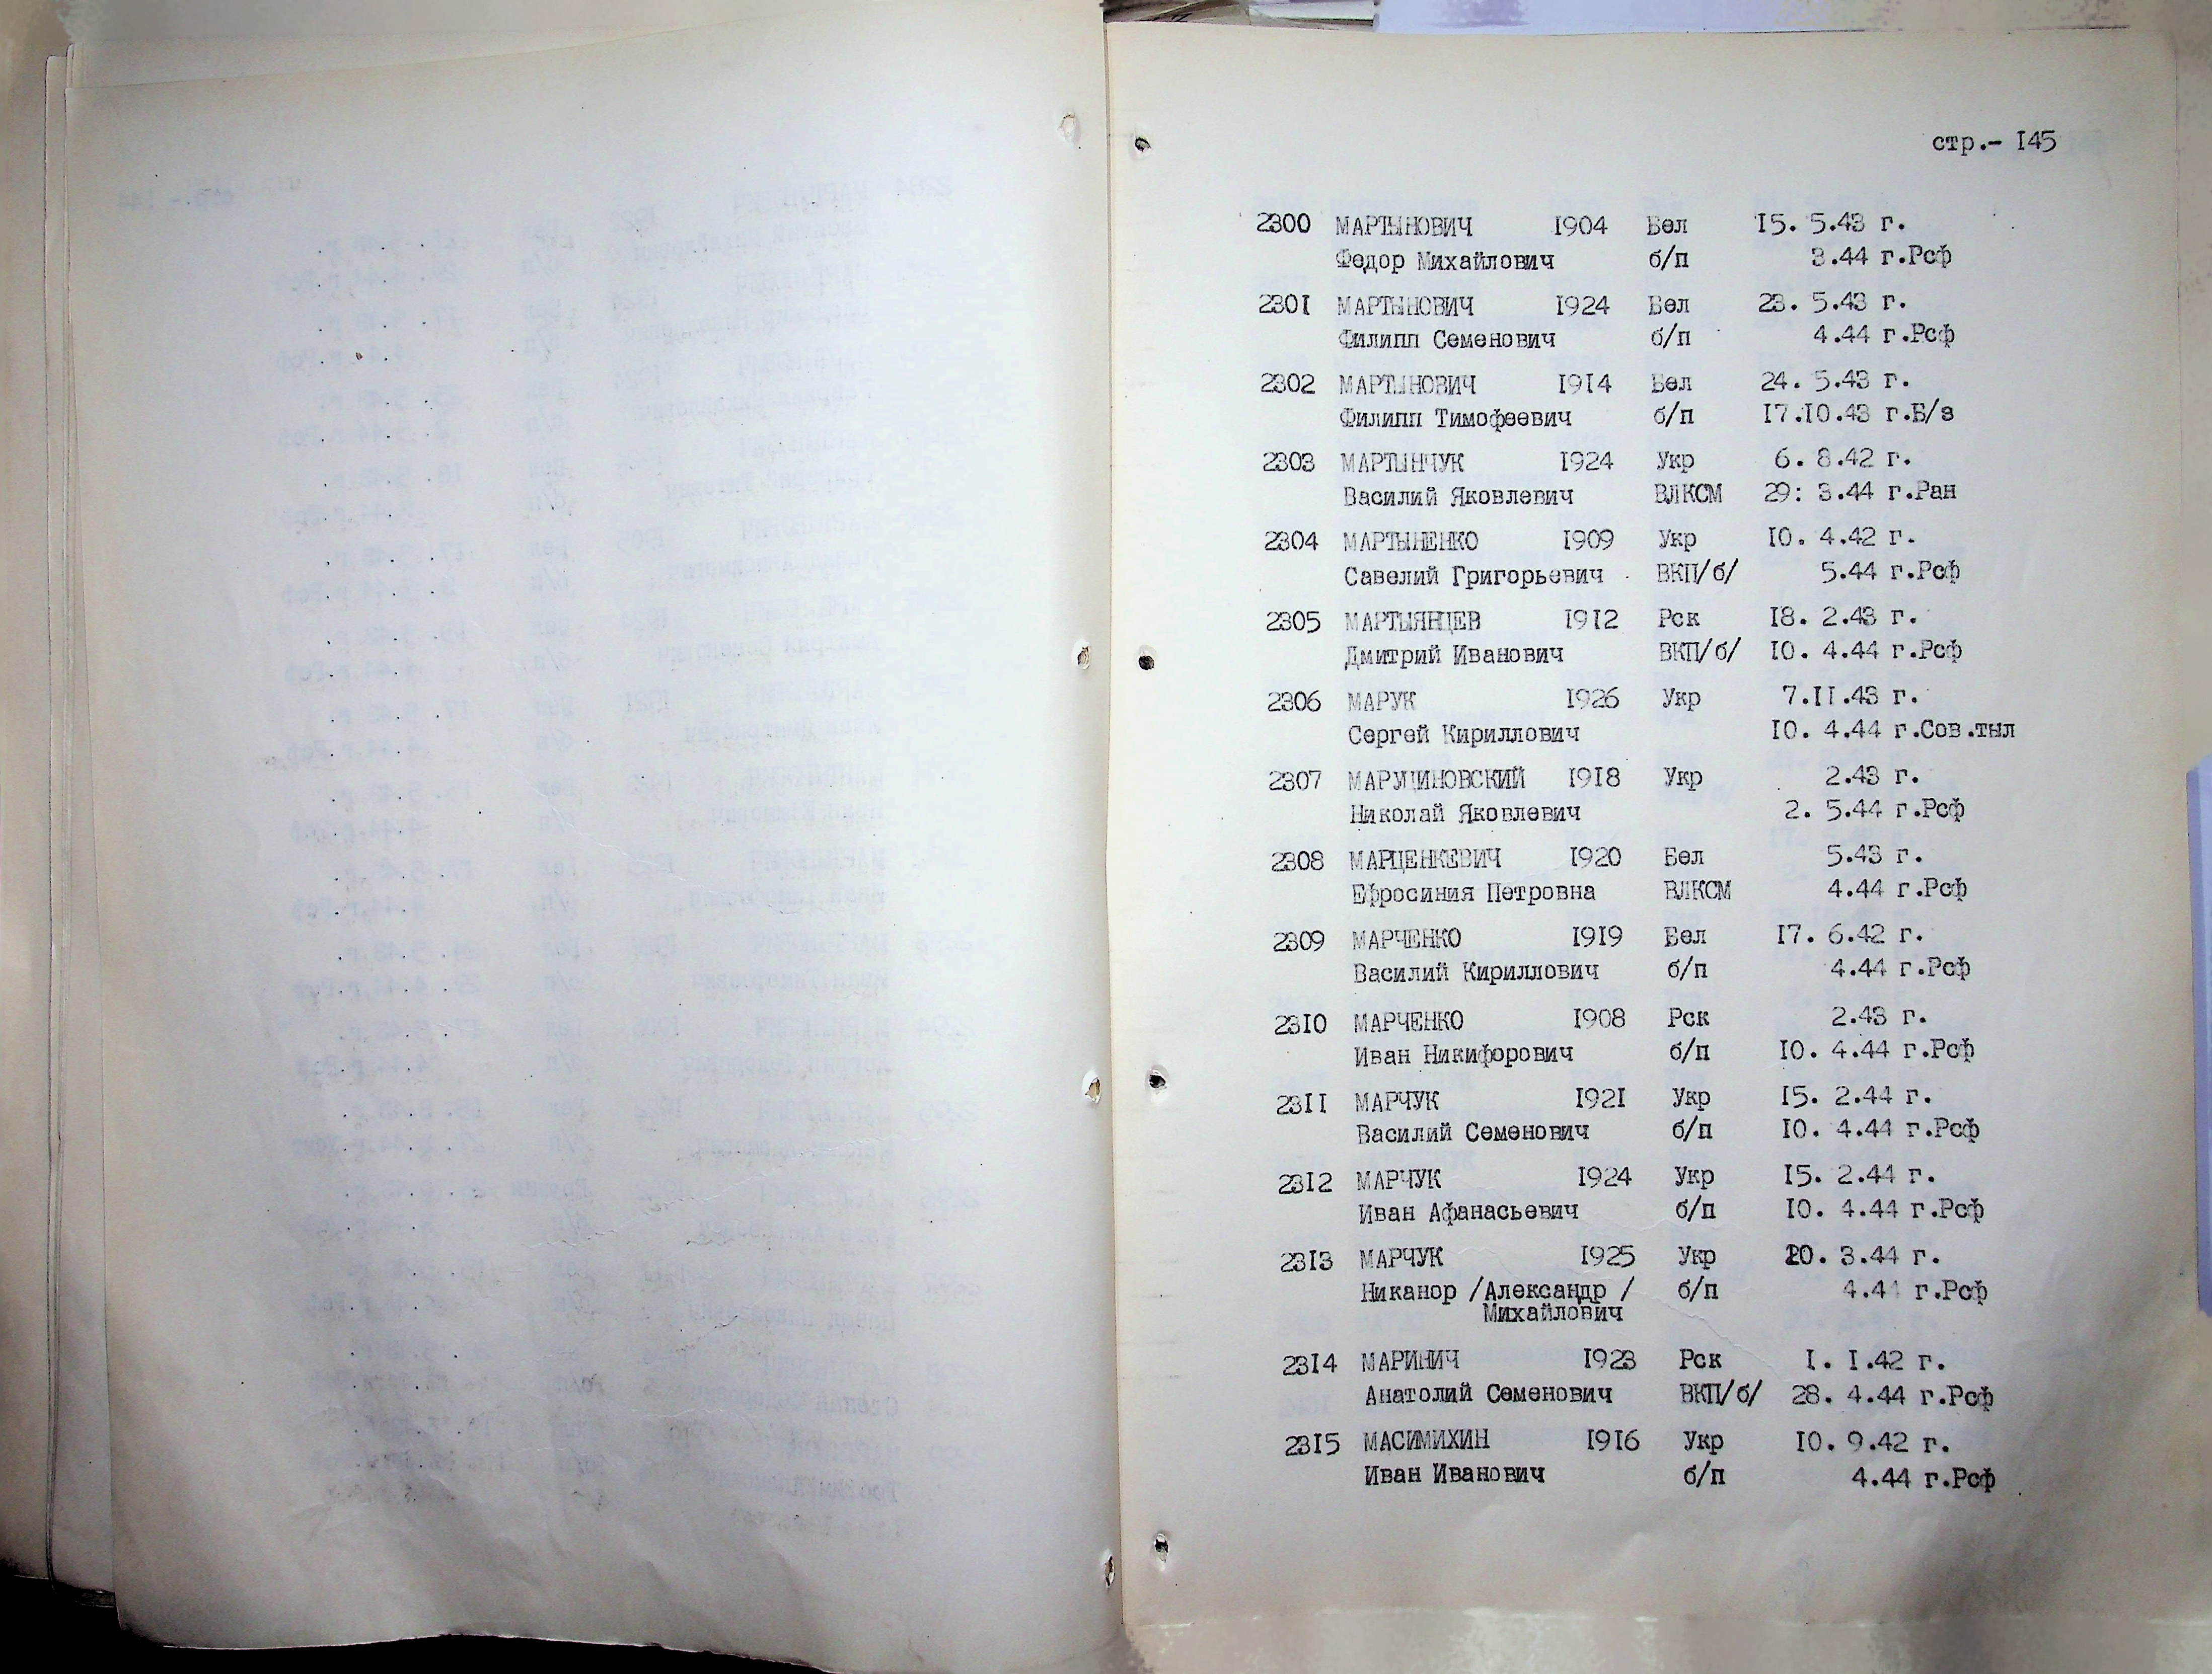 стр.- 145
2300 МАРТЫНОВИЧ 1904 Бел 15. 5.43 г.
Федор Михайлович б/п 3.44 г.Рсф
2301 МАРТЫНОВИЧ 1924 Бел 23. 5.43 г.
Филипп Семенович б/п 4.44 г.Рсф
2302 МАРТЫНОВИЧ 1914 Бел 24. 5.43 г.
Филипп Тимофеевич б/п 17.10.43 г.Б/з
2303 МАРТЫНЧУК 1924 Укр 6. 8.42 г.
Василий Яковлевич ВЛКСМ 29: 3.44 г.Ран
2304 МАРТЫНЕНКО 1909 Укр 10. 4.42 г.
Савелий Григорьевич ВКП/б/ 5.44 г.Рсф
2305 МАРТЫЯНЦЕВ 1912 Рск 18. 2.43 г.
Дмитрий Иванович ВКП/б/ 10. 4.44 г.Рсф
2306 МАРУК 1926 Укр 7.11.43 г.
Сергей Кириллович 10. 4.44 г.Сов.тыл
2307 МАРУЦИНОВСКИЙ 1918 Укр 2.43 г.
Николай Яковлевич 2. 5.44 г.Рсф
2308 МАРЦЕНКЕВИЧ 1920 Бел 5.43 г.
Ефросиния Петровна ВЛКСМ 4.44 г.Рсф
2309 МАРЧЕНКО 1919 Бел 17. 6.42 г.
Василий Кириллович б/п 4.44 г.Рсф
2310 МАРЧЕНКО 1908 Рск 2.43 г.
Иван Никифорович б/п 10. 4.44 г.Рсф
2311 МАРЧУК 1921 Укр 15. 2.44 г.
Василий Семенович б/п 10. 4.44 г.Рсф
2312 МАРЧУК 1924 Укр 15. 2.44 г.
Иван Афанасьевич б/п 10. 4.44 г.Рсф
2313 МАРЧУК 1925 Укр 20. 3.44 г.
Никанор /Александр / б/п 4.44 г.Рсф
Михайлович
2314 МАРИНИЧ 1923 Рск 1. 1.42 г.
Анатолий Семенович ВКП/б/ 28. 4.44 г.Рсф
2315 МАСИМИХИН 1916 Укр 10. 9.42 г.
Иван Иванович б/п 4.44 г.Рсф